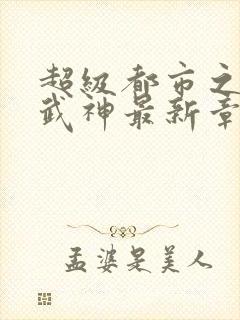 超级都市之
武神最新章
孟婆是美人